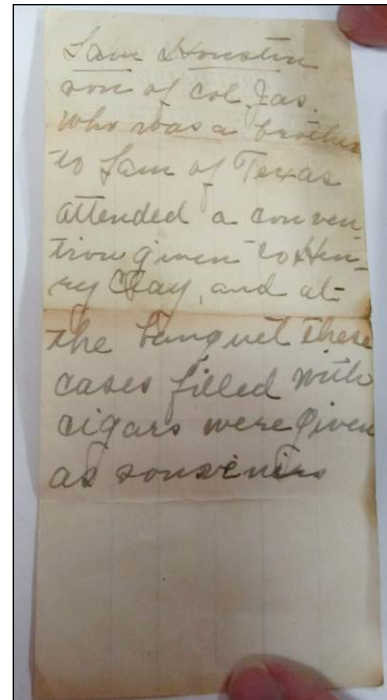 Sam Houston
son of Col. Jas.
who was a brother
to Sam of Texas
attended a conven-
tion given to Hen-
ry Clay, and at
the banquet these
cases filled with
cigars were given
as souvenirs